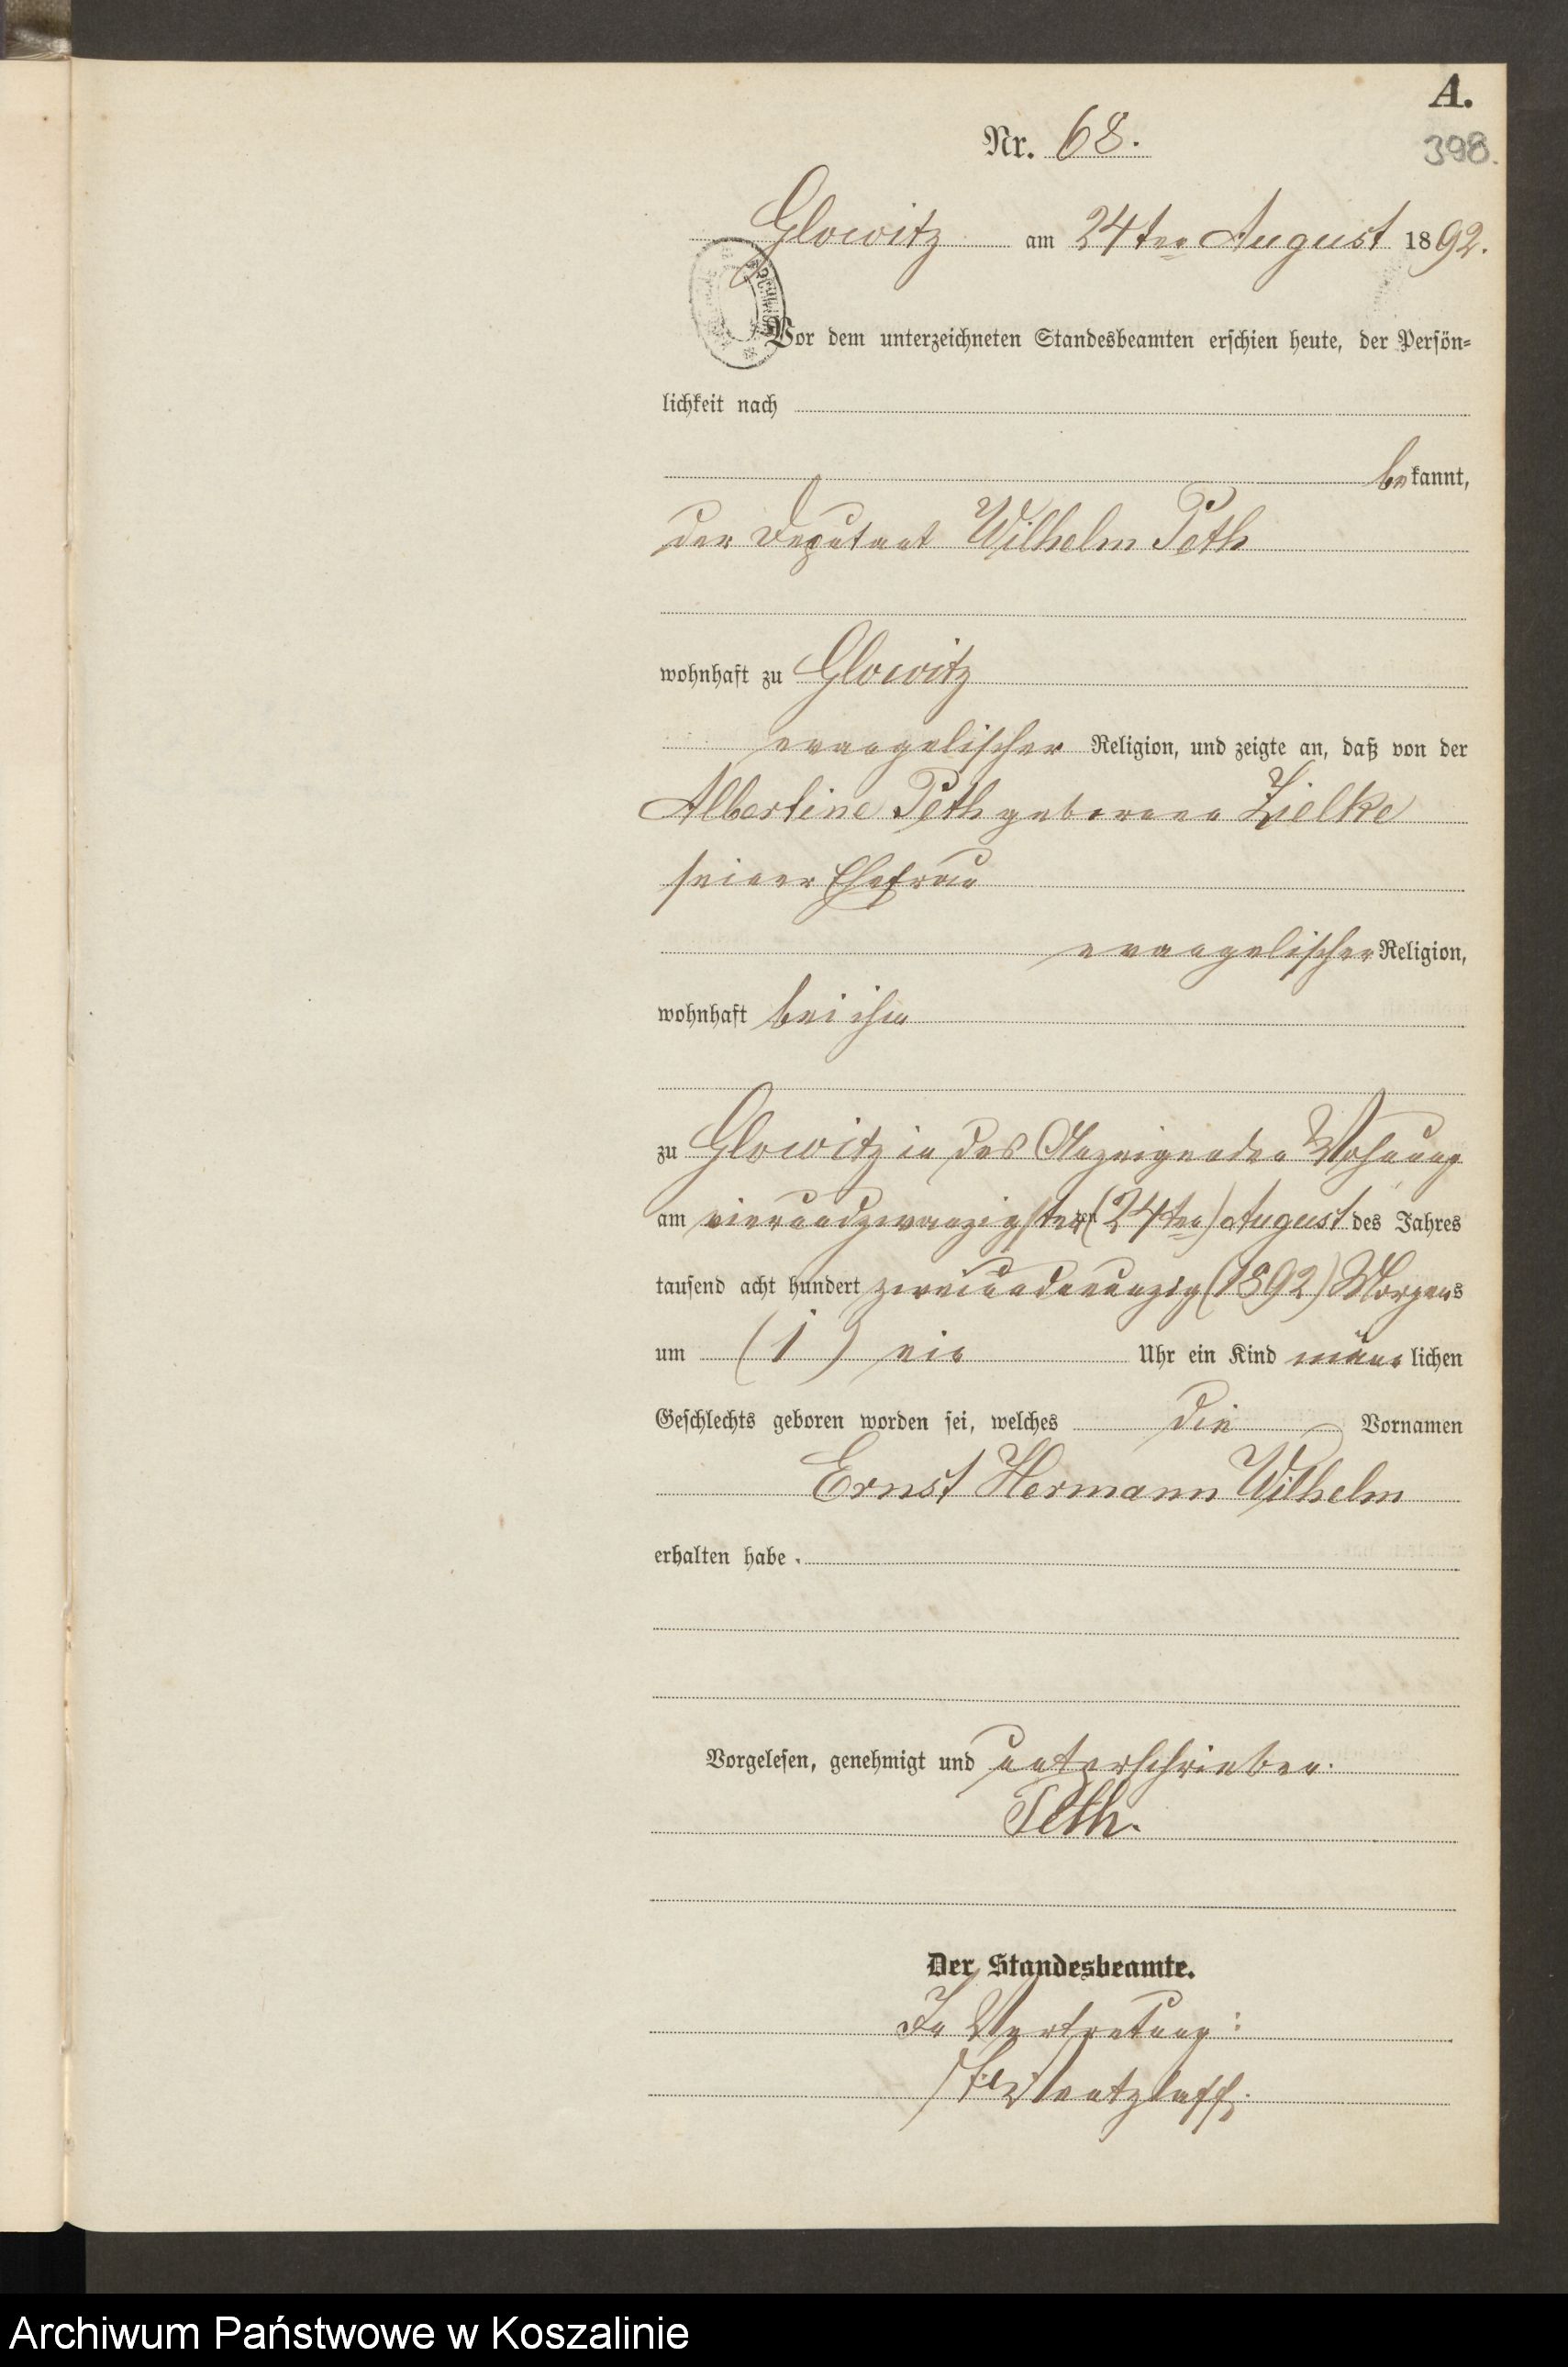 A.
Nr. 68.
398.
Glowitz am 24ten August 1892.
Vor dem unterzeichneten Standesbeamten erschien heute, der Persön-
lichkeit nach
bekannt,
der Deputant Wilhelm Peth
wohnhaft zu Glowitz
evangelischer Religion, und zeigte an, daß von der
Albertine Peth geborene Zielke
seiner Ehefrau
evangelischer Religion,
wohnhaft bei ihm
zu Glowitz in des Anzeigenden Wohnung
am vierundzwanzigsten (24ten) August des Jahres
tausend acht hundert zweiundneunzig (1892) Morgens
um (1) ein Uhr ein Kind männlichen
Geschlechts geboren worden sei, welches die Vornamen
Ernst Hermann Wilhelm
erhalten habe.
Vorgelesen, genehmigt und unterschrieben.
Peth.
Der Standesbeamte.
In Vertretung:
Archiwum Państwowe w Koszalinie